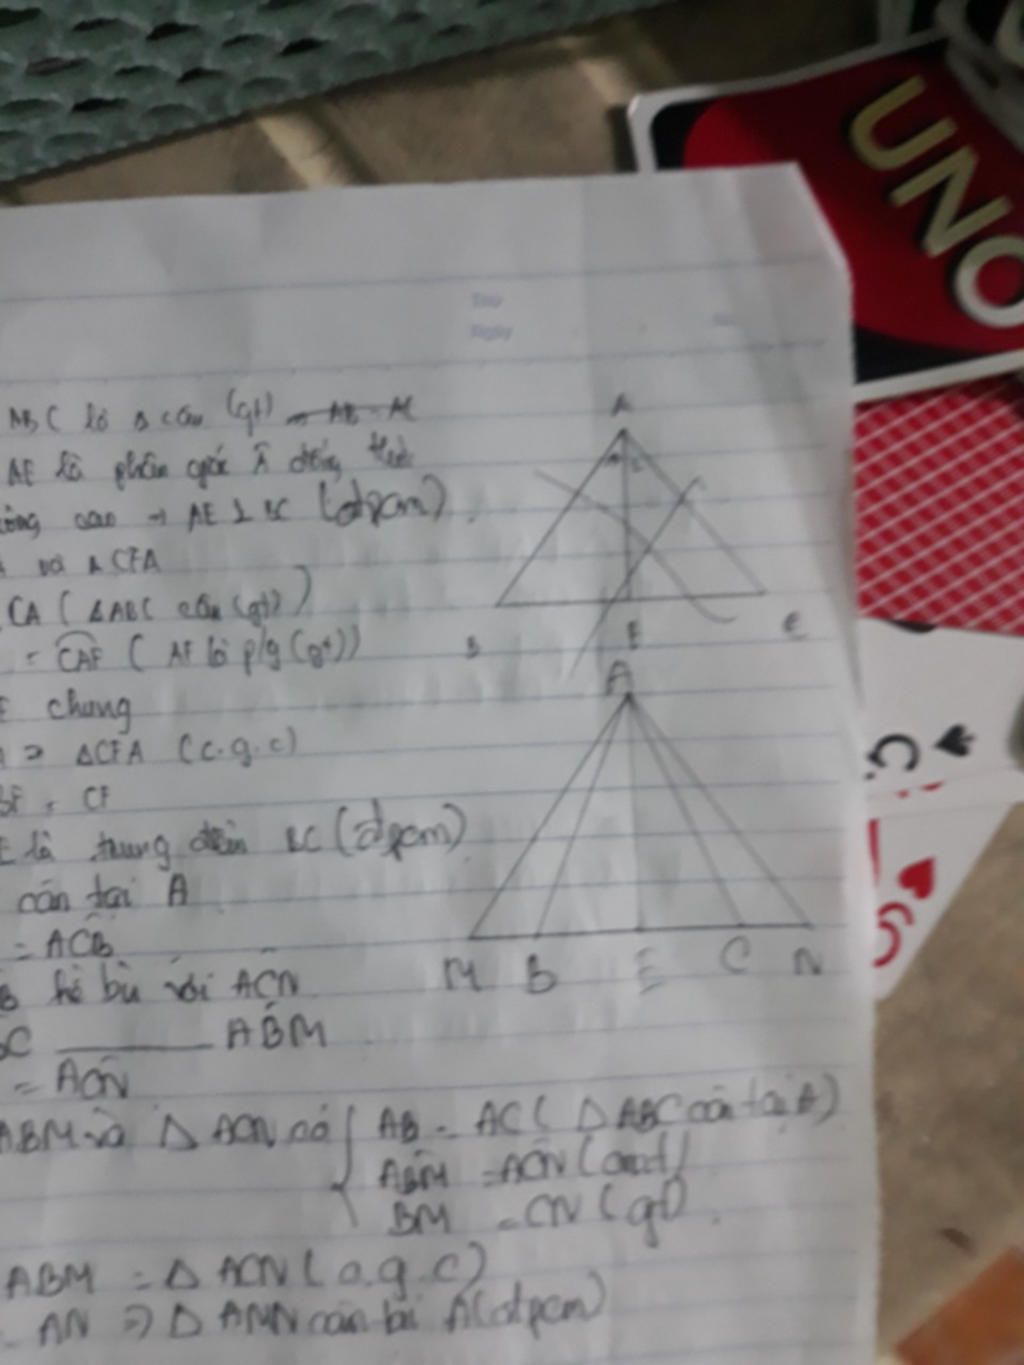 UNO
Thứ
Ngày
ABC là Δ cân (gt)
AE là phân giác Â đồng thời
cao → AE ⊥ BC (đpcm).
và Δ CEA
CA (ΔABC cân (gt))
= CAE (AE là p/g (gt))
E chung
⇒ ΔCEA (c.g.c)
BE = CE
E là trung điểm BC (đpcm)
cân tại A
= ACB
kề bù với ACN
C ABM
= ACN
ABM và Δ ACN có { AB = AC (Δ ABC cân tại A)
ABM = ACN (cmt)
BM = CN (gt).
ABM = Δ ACN (c.g.c)
= AN ⇒ Δ AMN cân tại A (đpcm)
A
1 2
B E C
A
M B E C N